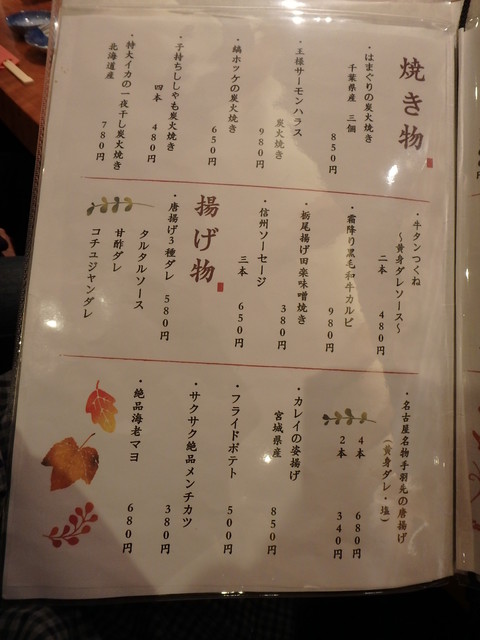 焼き物
・はまぐりの炭火焼き
千葉県産 三個 850円
・王様サーモンハラス
炭火焼き 980円
・縞ホッケの炭火焼き 650円
・子持ちししゃも炭火焼き
四本 480円
・特大イカの一夜干し炭火焼き
北海道産 780円
・牛タンつくね
~黄身ダレソース~
二本 480円
・霜降り黒毛和牛カルビ 980円
・栃尾揚げ田楽味噌焼き 380円
・信州ソーセージ
三本 650円
揚げ物
・唐揚げ3種ダレ 580円
タルタルソース
甘酢ダレ
コチュジャンダレ
・名古屋名物手羽先の唐揚げ
(黄身ダレ・塩)
4本 680円
2本 340円
・カレイの姿揚げ
宮城県産 850円
・フライドポテト 500円
・サクサク絶品メンチカツ 380円
・絶品海老マヨ 680円